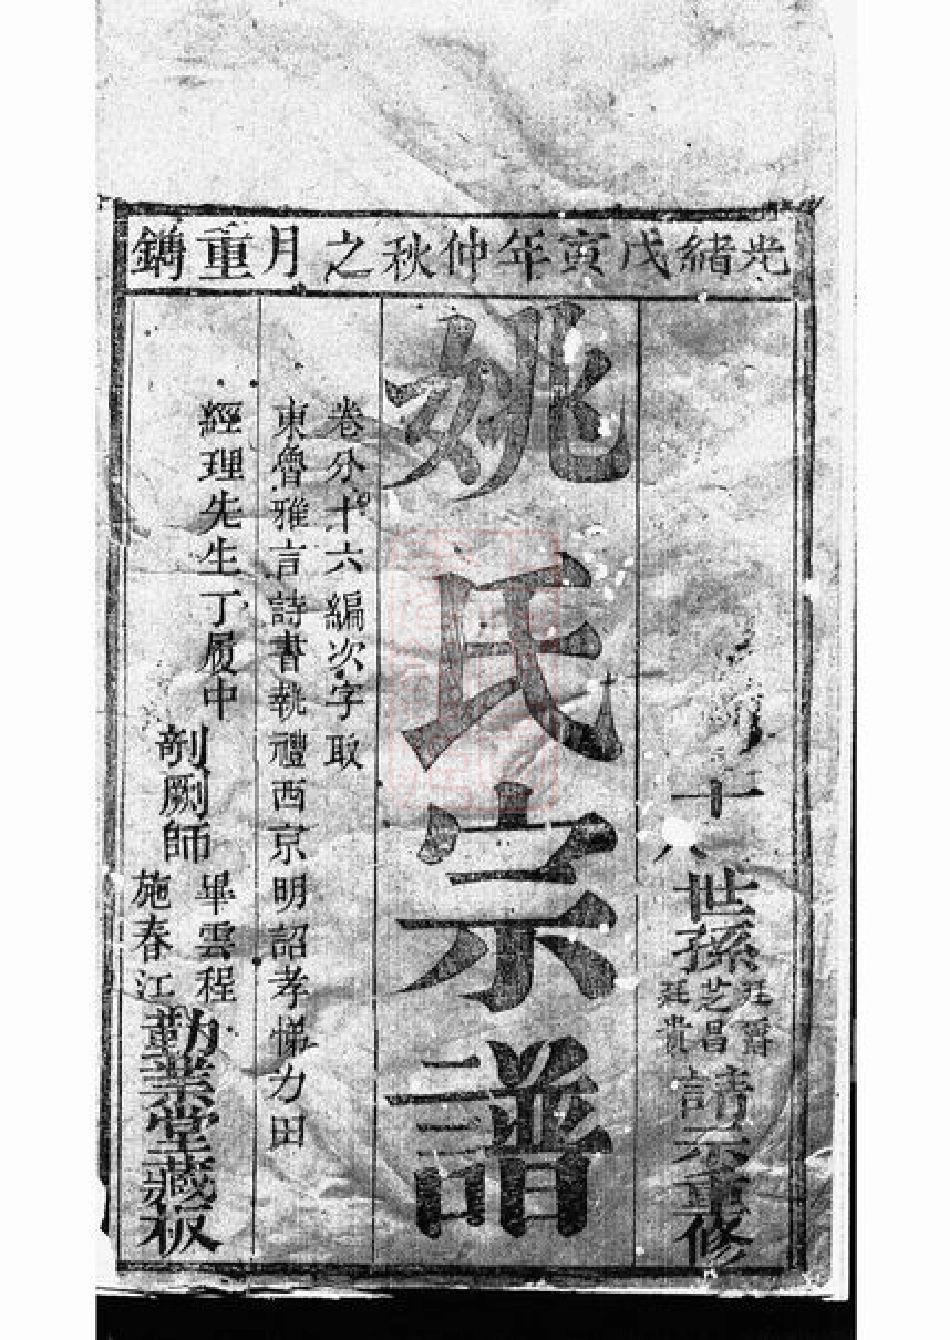 光緒戊寅年仲秋之月重鐫
十八世孫
廷爵
芝昌
廷貴
請示重修
姚氏宗譜
卷分十六編次字取
東魯雅言詩書執禮西京明詔孝悌力田
經理先生丁履中
剞劂師
畢雲程
施春江
勤業堂藏板